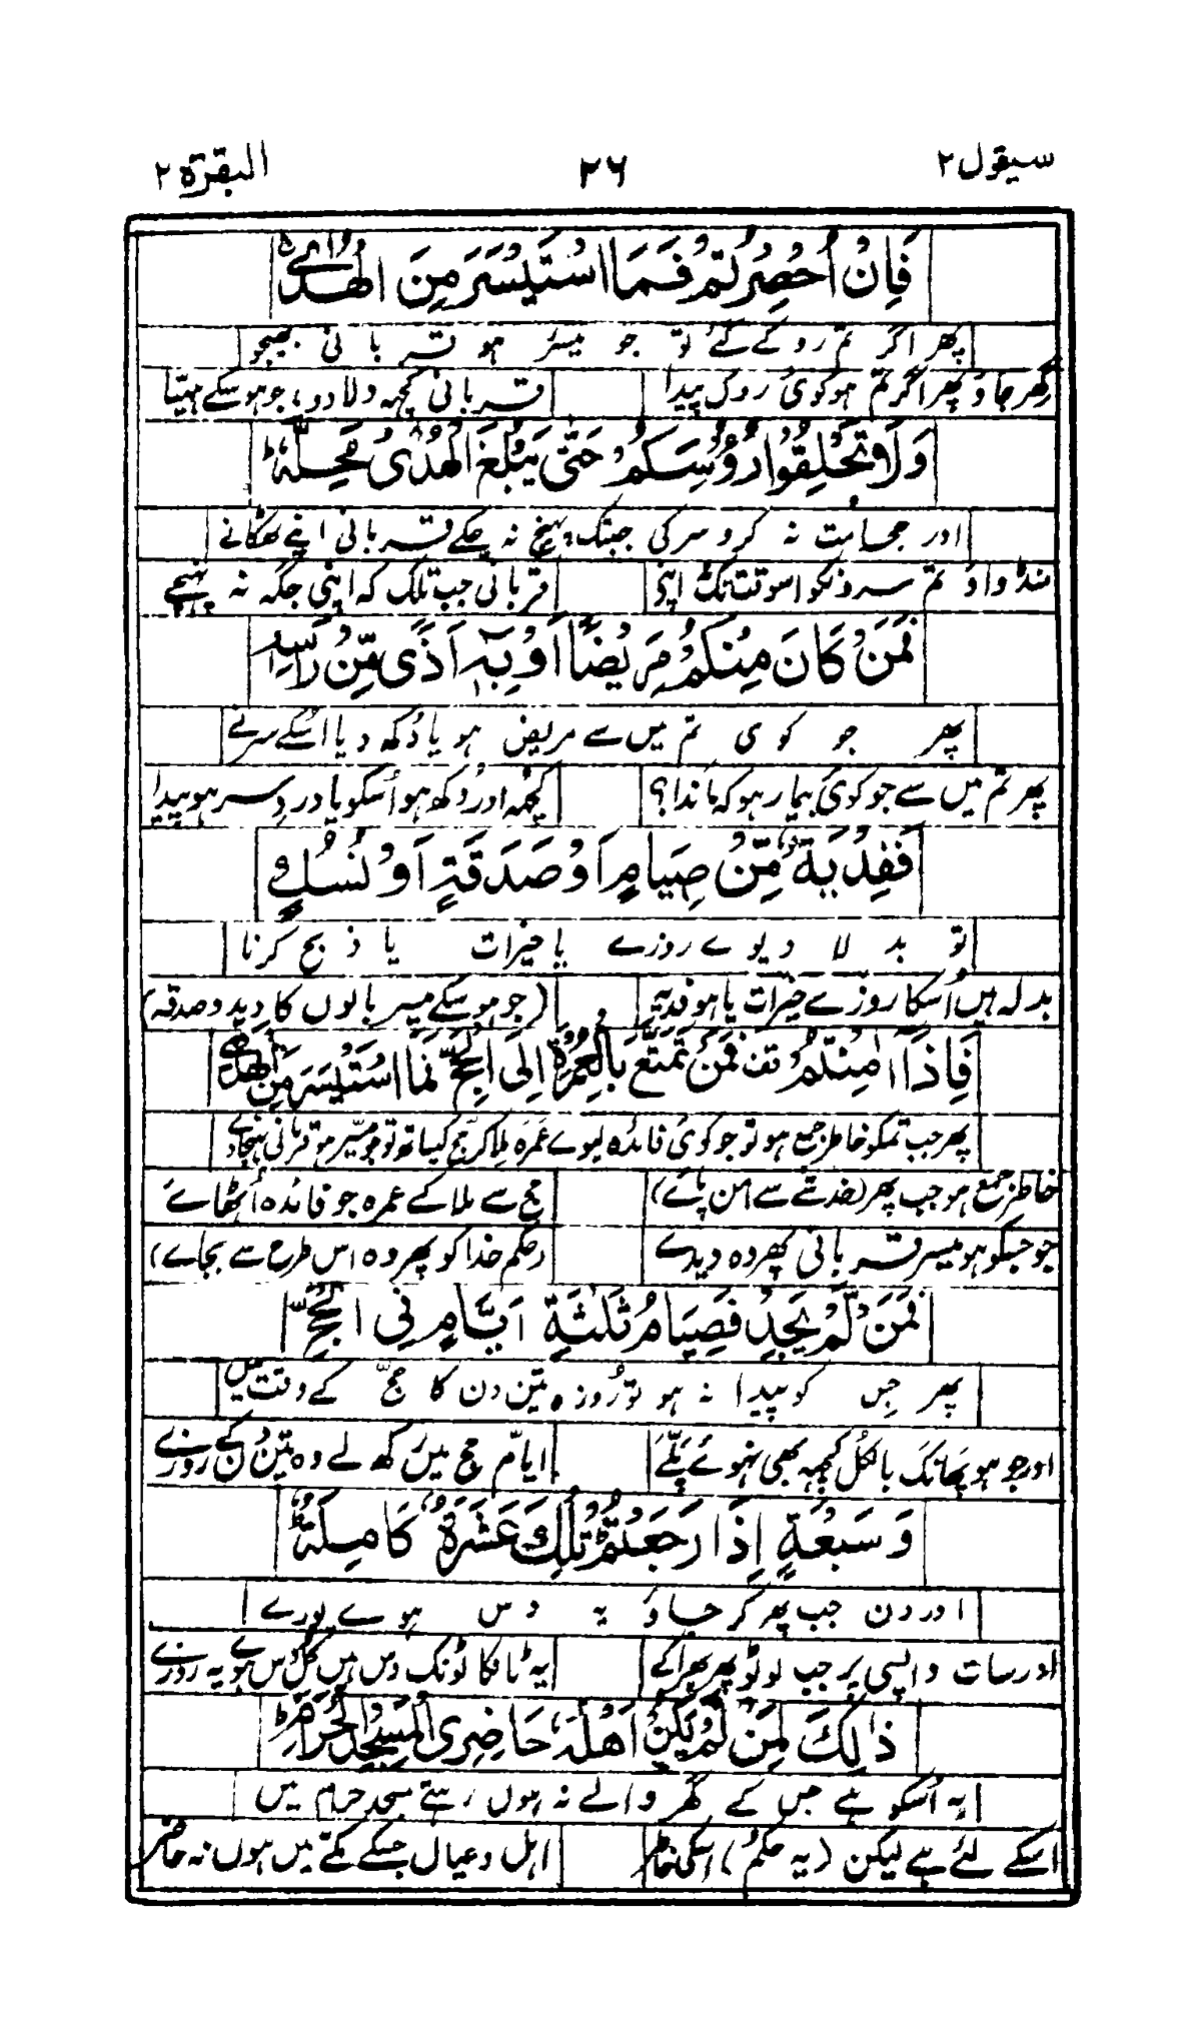 سیقول ۲ ۲۶ البقرة ۲
فَاِنْ اُحْصِرْتُمْ فَمَا اسْتَیْسَرَ مِنَ الْهَدْیِ ۚ
پھر اگر تم روکے گئے تو جو میسر ہو قربانی بھیجو
گھر جاؤ پھر اگر تم ہو کوئی روک پیدا قربانی کچہ دلا دو، جو ہو سکے مہیّا
وَلَا تَحْلِقُوْا رُءُوْسَكُمْ حَتّٰی یَبْلُغَ الْهَدْیُ مَحِلَّهٗ ؕ
اور حجامت نہ کرو سر کی جبتک پہنچ نہ چکے قربانی اپنے ٹھکانے
منڈواؤ تم سرونکو اسوقت تک اپنی قربانی جب تلک کہ اپنی جگہ نہ پہنچے
فَمَنْ كَانَ مِنْكُمْ مَّرِیْضًا اَوْ بِهٖۤ اَذًی مِّنْ رَّاْسِهٖ
پھر جو کوی تم میں سے مریض ہو یا دُکھ دیا اُسکے سرنے
پھر تم میں سے جو کوئی بیمار ہو کہ ماندا؟ کچھ اور دُکھ ہو اُسکو یا دردِ سر ہو پیدا
فَفِدْیَةٌ مِّنْ صِیَامٍ اَوْ صَدَقَةٍ اَوْ نُسُكٍ ۚ
تو بدلا دیوے روزے یا خیرات یا ذبح کرنا
بدلہ ہیں اُسکا روزے خیرات یا ہو فدیہ (جو ہو سکے میسر بالوں کا دیدو صدقہ)
فَاِذَاۤ اَمِنْتُمْ ۥ فَمَنْ تَمَتَّعَ بِالْعُمْرَةِ اِلَی الْحَجِّ فَمَا اسْتَیْسَرَ مِنَ الْهَدْیِ ۚ
پھر جب تمکو خاطر جمع ہو تو جو کوئی فائدہ لیوے عمرہ ملا کر حج کیساتھ تو جو میسّر ہو قربانی پہنچاوے
خاطر جمع ہو جب پھر (خدشے سے امن پائے) حج سے ملا کے عمرہ جو فائدہ اُٹھائے
جو جسکو ہو میسر قربانی پھر وہ دیدے (حکمِ خدا کو پھر وہ اس طرح سے بجائے)
فَمَنْ لَّمْ یَجِدْ فَصِیَامُ ثَلٰثَةِ اَیَّامٍ فِی الْحَجِّ
پھر جِس کو پیدا نہ ہو تو روزہ تین دن کا حجّ کے وقت میں
اور جو ہو یہانتک بالکُل کچہ بھی نہوئے پَلّے ایّامِ حج میں رکھ لے وہ تین دن کے روزے
وَ سَبْعَةٍ اِذَا رَجَعْتُمْ ؕ تِلْكَ عَشَرَةٌ كَامِلَةٌ ؕ
اور دن جب پھر کر جاؤ یہ دس ہوے پورے
اور سات واپسی پر جب لوٹو پھر پھرا کے یہ ٹانکا ٹونک دس ہیں کُل دس ہوے یہ روزے
ذٰلِكَ لِمَنْ لَّمْ یَكُنْ اَهْلُهٗ حَاضِرِی الْمَسْجِدِ الْحَرَامِ ؕ
یہ اُسکو ہے جس کے گھر والے نہ ہوں رہتے مسجد حرام میں
اسکے لئے ہے لیکن (یہ حکم) اسکی خاطر اہل و عیال جسکے مکّے میں ہوں نہ حاضر